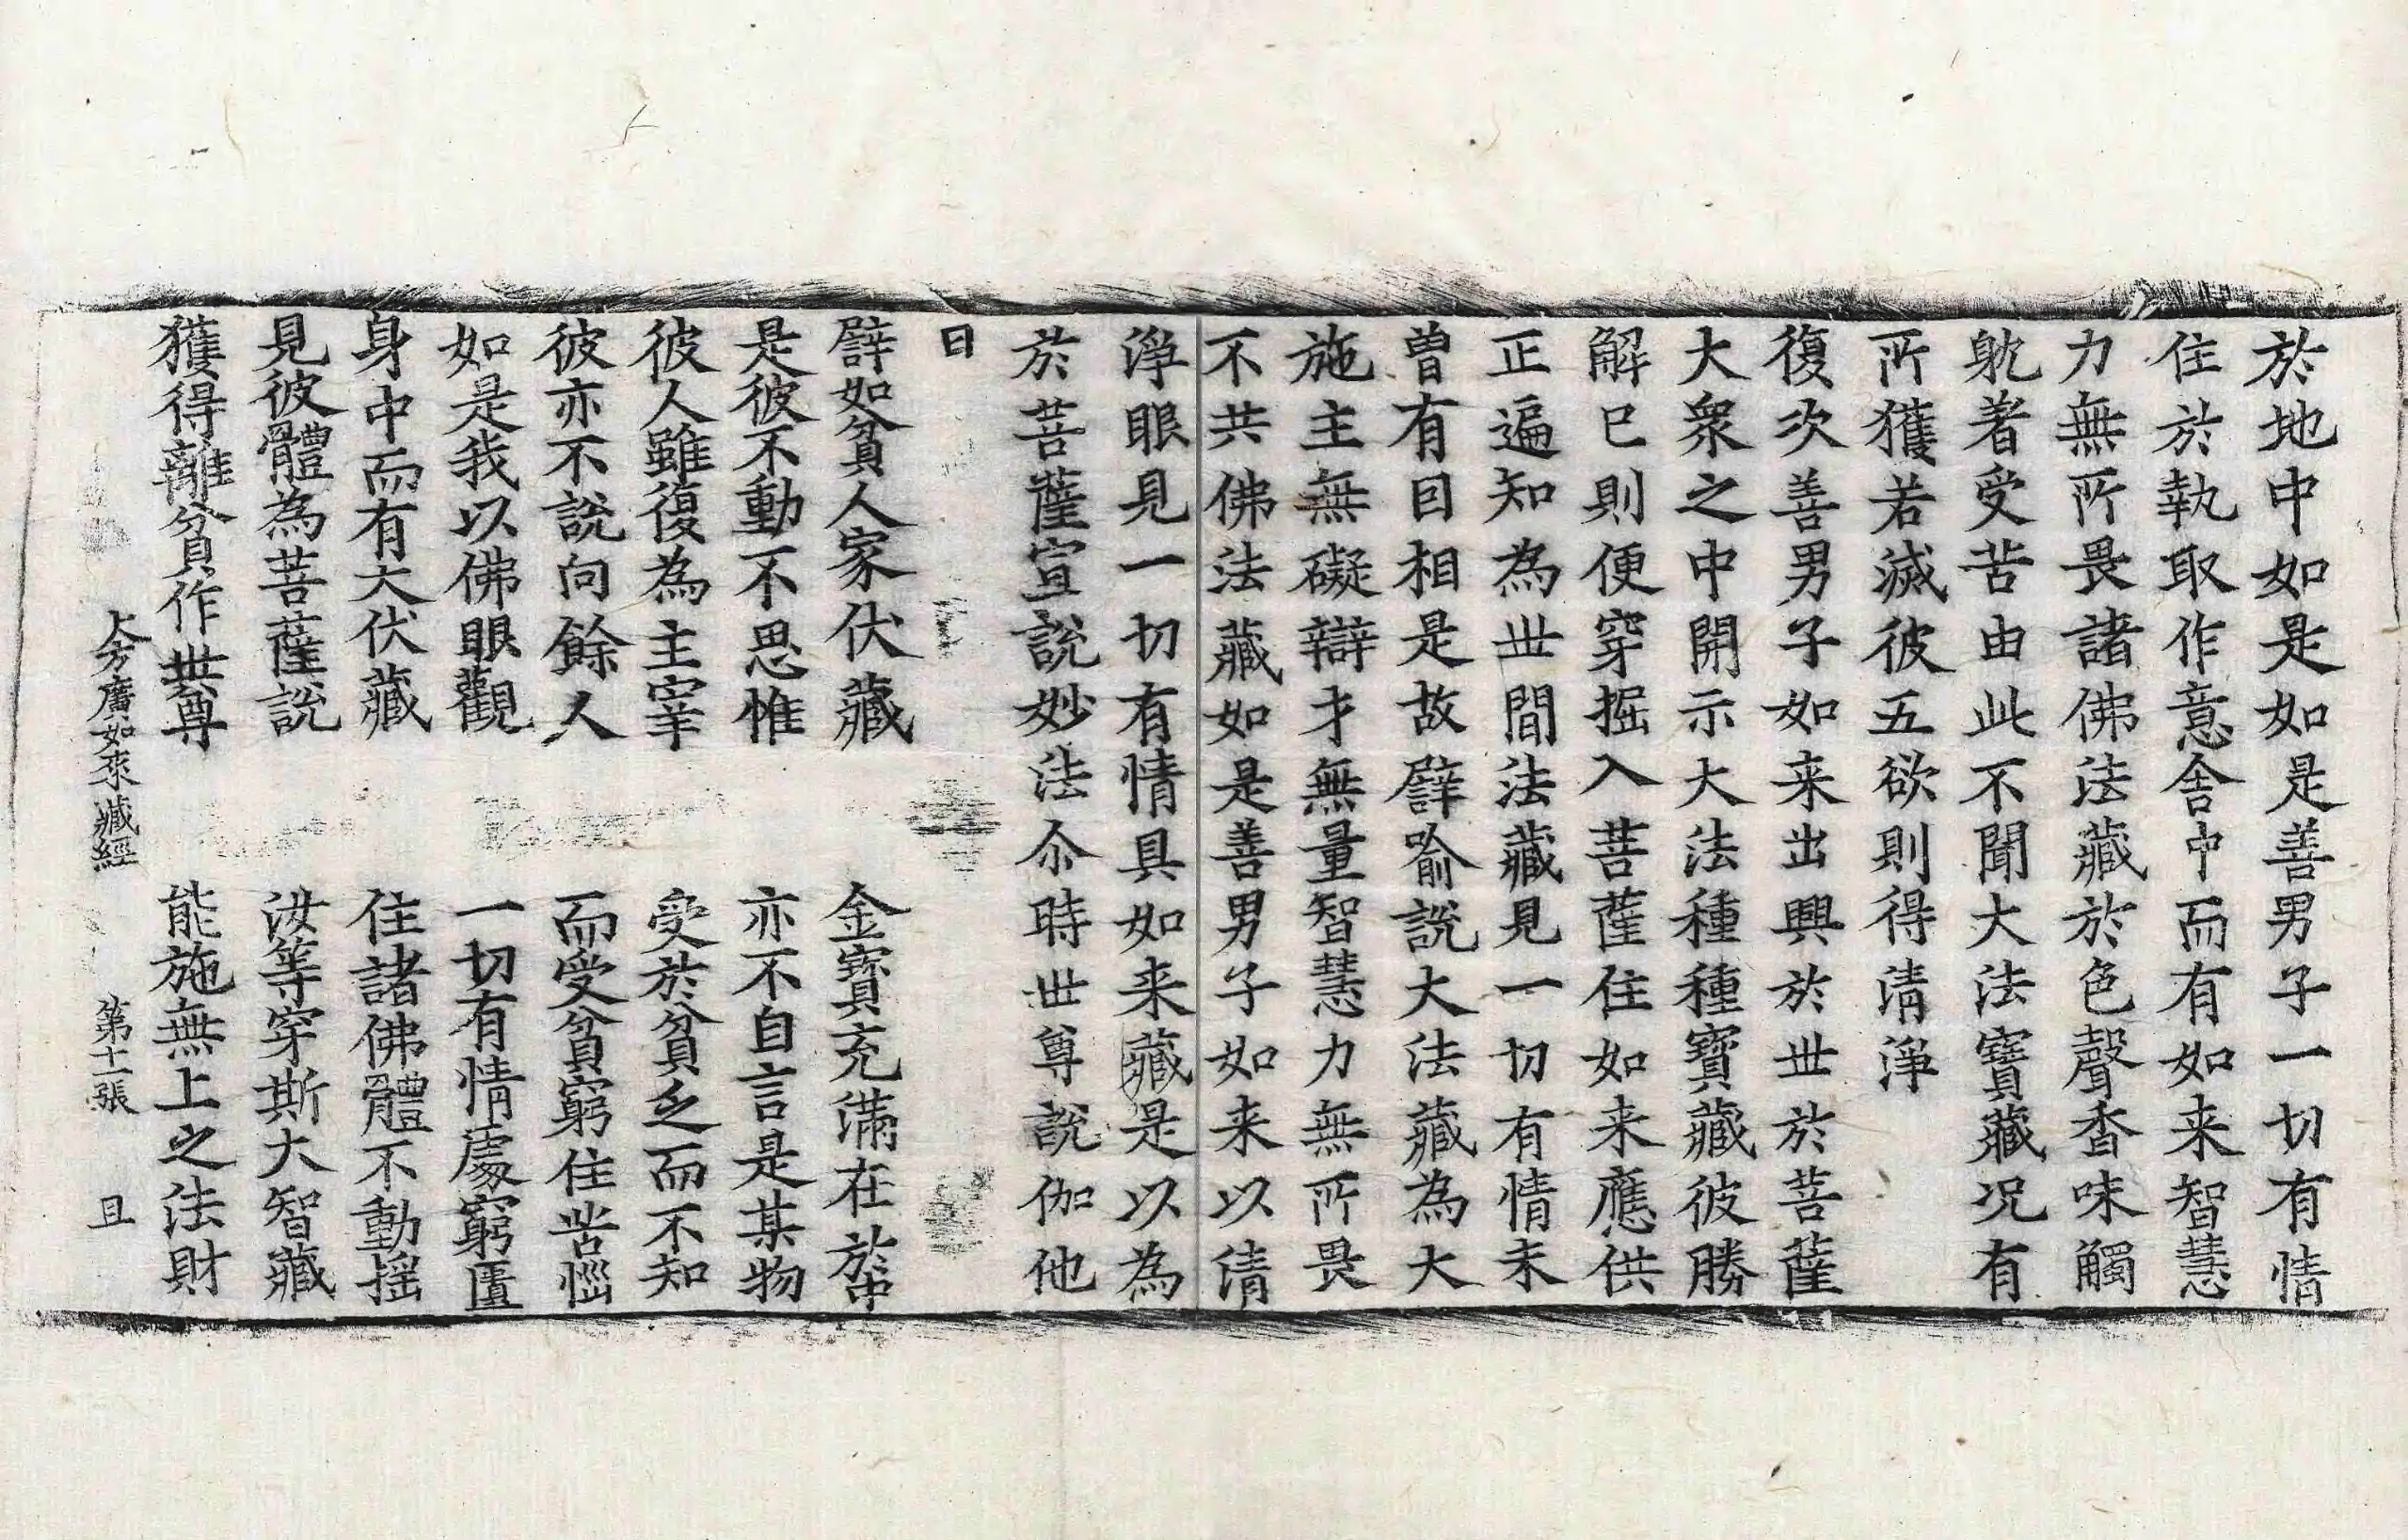 於地中如是如是善男子一切有情
住於執取作意舍中而有如来智慧
力無所畏諸佛法藏於色聲香味觸
躭著受苦由此不聞大法寶藏况有
所獲若滅彼五欲則得清淨
復次善男子如来出興於世於菩薩
大衆之中開示大法種種寶藏彼勝
解已則便穿掘入菩薩住如来應供
正遍知為世間法藏見一切有情未
曾有因相是故譬喻說大法藏為大
施主無礙辯才無量智慧力無所畏
不共佛法藏如是善男子如来以清
淨眼見一切有情具如来藏是以為
於菩薩宣說妙法尒時世尊說伽他
曰
譬如貧人家伏藏　金寶充滿在於中
是彼不動不思惟　亦不自言是某物
彼人雖復為主宰　受於貧乏而不知
彼亦不說向餘人　而受貧窮住苦惱
如是我以佛眼觀　一切有情處窮匱
身中而有大伏藏　住諸佛體不動搖
見彼體為菩薩說　汝等穿斯大智藏
獲得離貧作世尊　能施無上之法財
大方廣如來藏經　第十一張　且